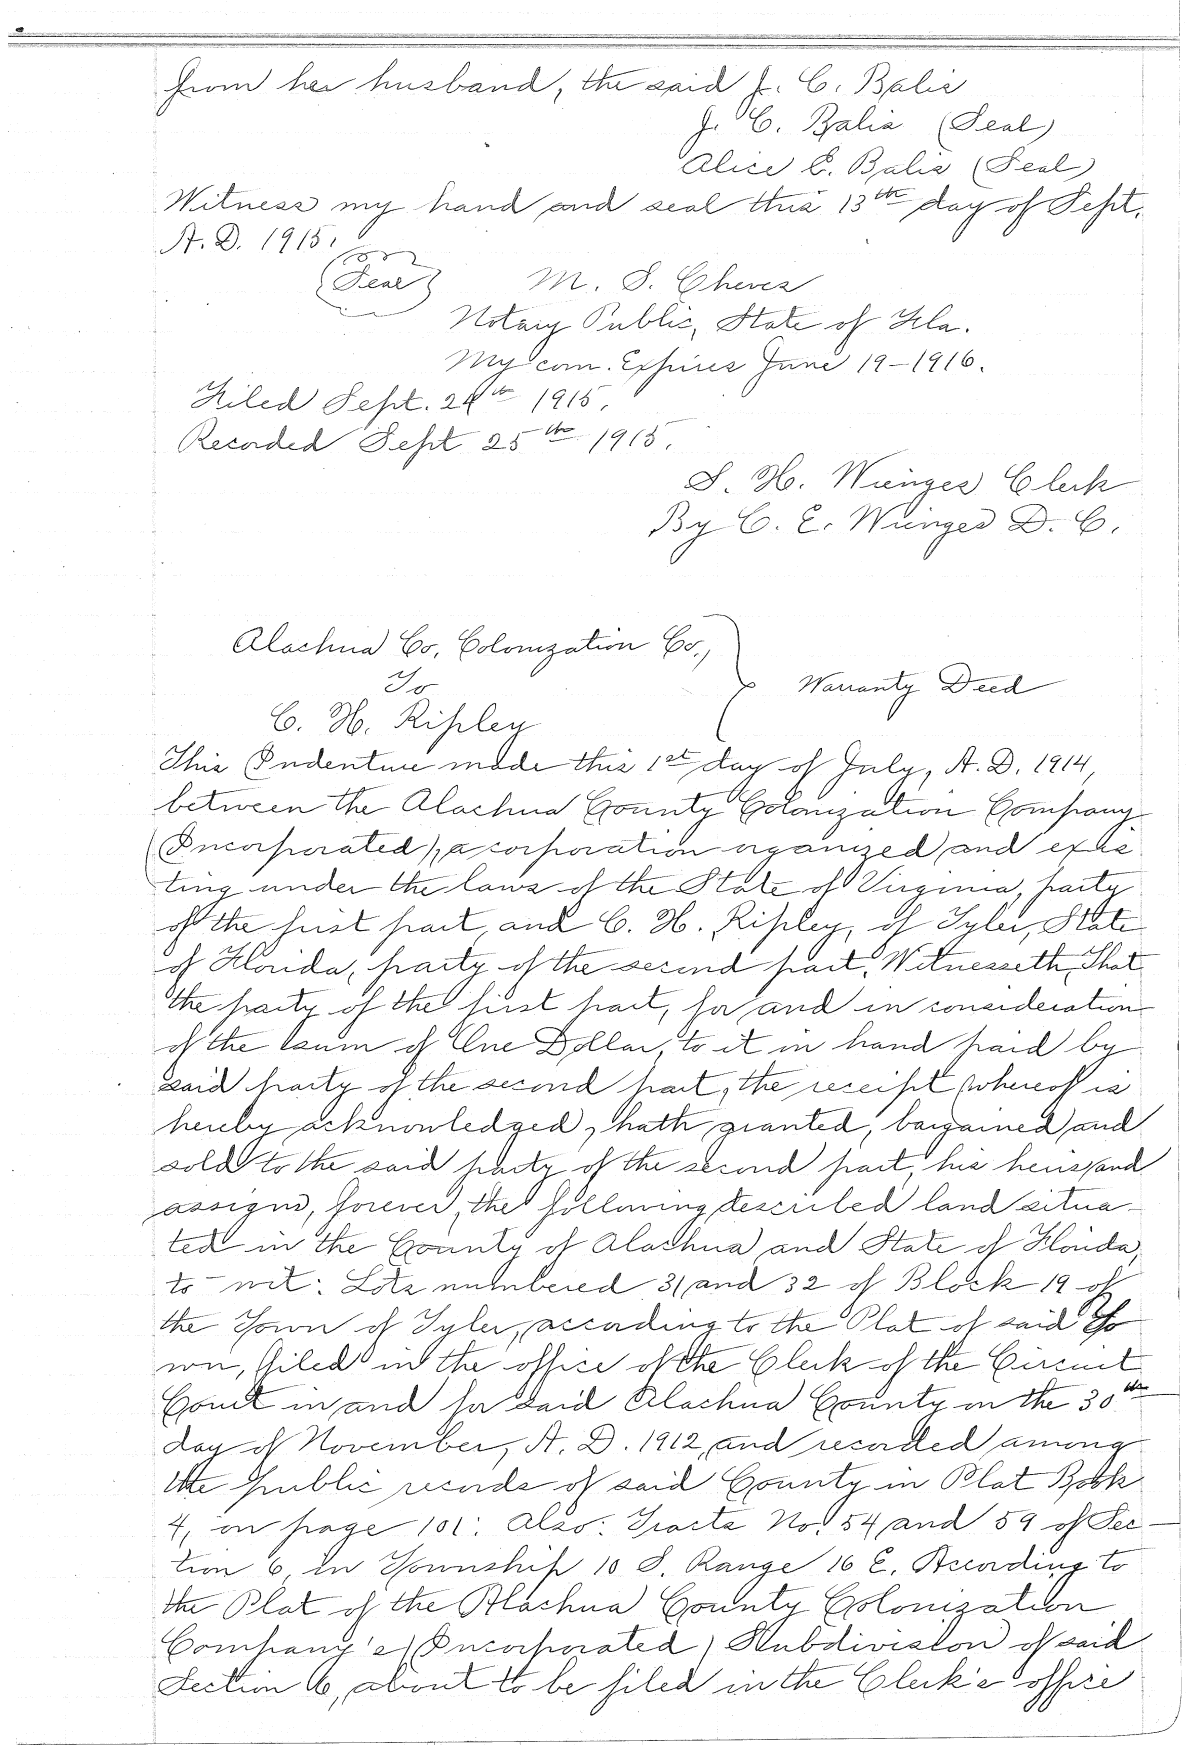 from her husband, the said J. C. Balis
J. C. Balis (Seal)
Alice E. Balis (Seal)
Witness my hand and seal this 13th day of Sept.
A. D. 1915.
(Seal) M. S. Cheves
Notary Public, State of Fla.
My com. Expires June 19-1916.
Filed Sept. 24th 1915.
Recorded Sept 25th 1915.
S. H. Wienges Clerk
By C. E. Wienges D. C.
Alachua Co, Colonization Co.,
To
Warranty Deed
C. H. Ripley
This Indenture made this 1st day of July, A. D. 1914,
between the Alachua County Colonization Company
(Incorporated), a corporation organized and exis
ting under the laws of the State of Virginia, party
of the first part, and C. H. Ripley, of Tyler, State
of Florida, party of the second part, Witnesseth, That
the party of the first part, for and in consideration
of the sum of One Dollar, to it in hand paid by
said party of the second part, the receipt whereof is
hereby acknowledged, hath granted, bargained and
sold to the said party of the second part, his heirs and
assigns, forever, the following described land situa-
ted in the County of Alachua and State of Florida,
to-wit: Lots numbered 31 and 32 of Block 19 of
the Town of Tyler, according to the Plat of said To
wn, filed in the office of the Clerk of the Circuit
Court in and for said Alachua County on the 30th
day of November, A. D. 1912, and recorded among
the public records of said County in Plat Book
4, on page 101: Also: Tracts No. 54 and 59 of Sec-
tion 6, in Township 10 S. Range 16 E. According to
the Plat of the Alachua County Colonization
Company's (Incorporated) Subdivision of said
Section 6, about to be filed in the Clerk's office